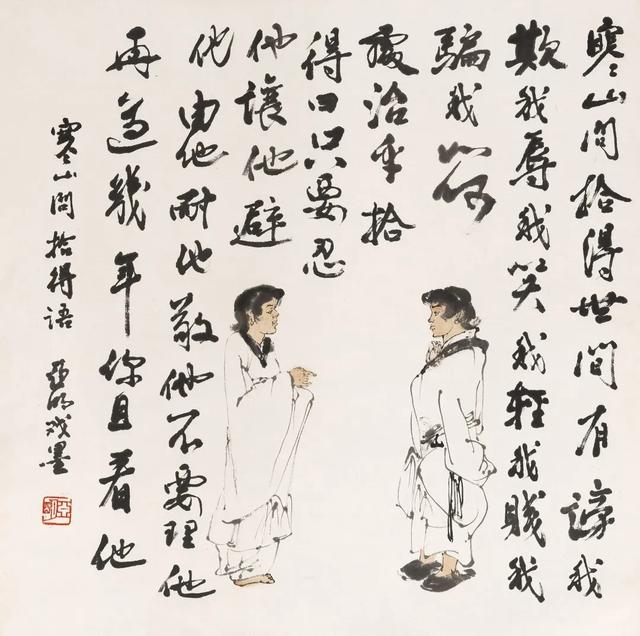 寒山問拾得世間有謗我
欺我辱我笑我輕我賤我
騙我如何
處治乎拾
得曰只要忍
他讓他避
他由他耐他敬他不要理他
再過幾年你且看他
寒山問拾得語 亞明戏墨